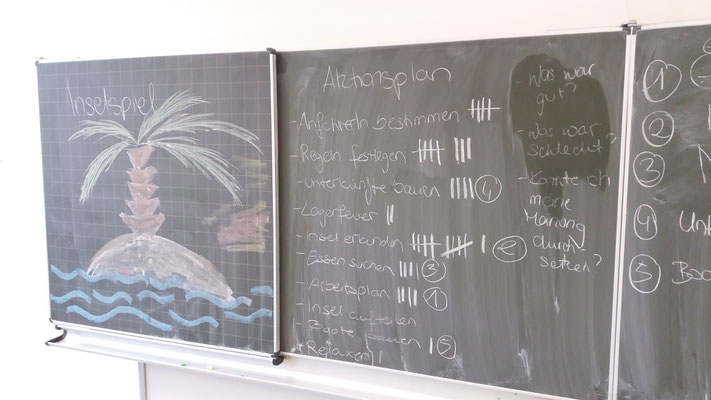 Inselspiel
Aktionsplan
- AnführerIn bestimmen
- Regeln festlegen
- Unterkünfte bauen 4
- Lagerfeuer
- Insel erkunden 2
- Essen suchen 3
- Arbeitsplan 1
- Insel aufteilen
- Boote bauen 5
+ Relaxen
- Was war
gut?
- Was war
schlecht?
- Konnte ich
meine
Meinung
durch-
setzen?
1
2
3
4 Unt
5 Boo